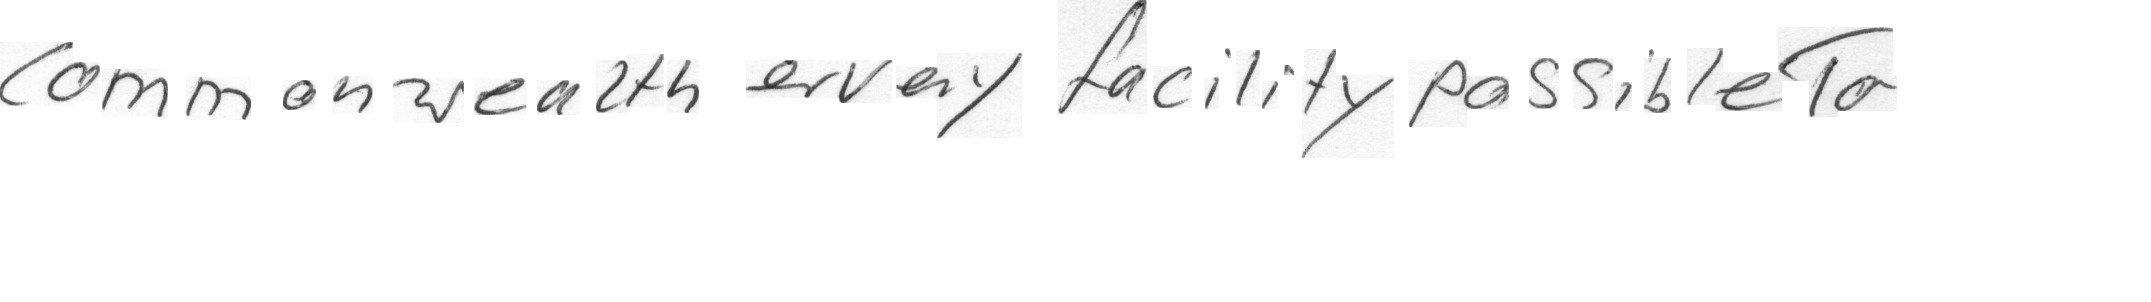 Commonwealth ervery facility possible To